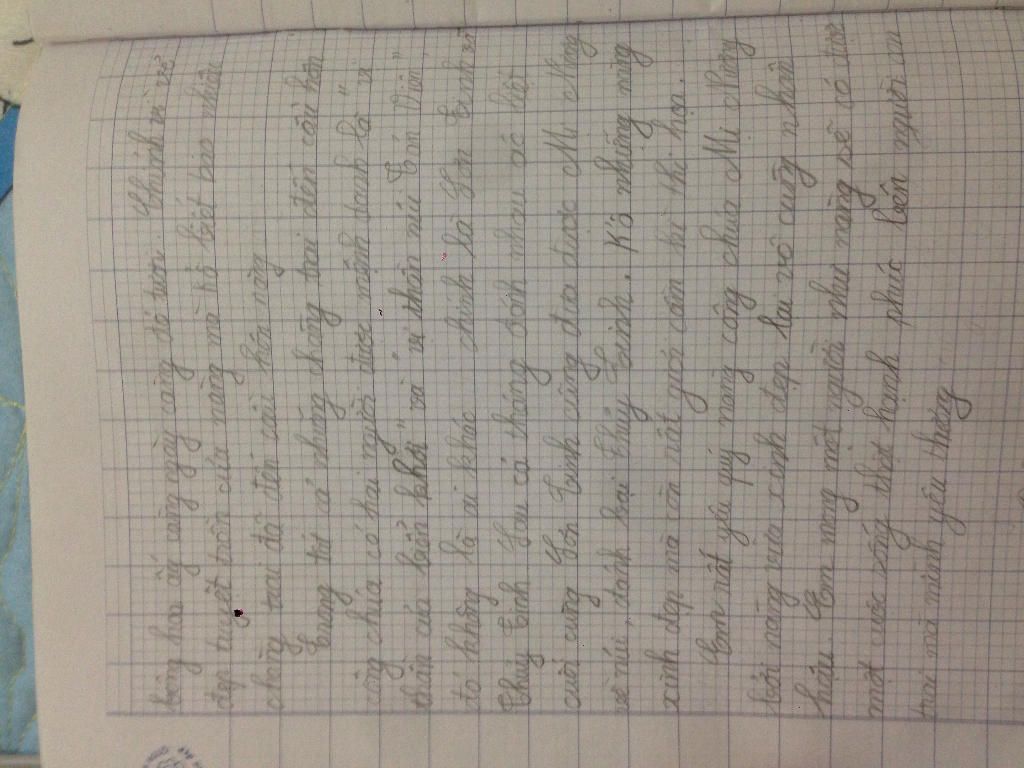 bông hoa ấy càng ngày càng đỏ tươi. Chính vì vẻ
đẹp tuyệt trần của nàng mà kô biết bao nhiêu
chàng trai đã đến cầu hôn nàng
Trong tất cả những chàng trai đến cầu hôn
công chúa có hai người được mệnh danh là " vị
thần của biển khơi" và " vị thần núi Tản Viên"
đó không là ai khác chính là Sơn Tinh và
Thủy Tinh. Sau cả tháng đánh nhau nó hội
cuối cùng Sơn Tinh cũng đưa được Mị Nương
về núi, đánh bại Thủy Tinh. Kô những nàng
xinh đẹp mà còn rất giỏi cầm kì thi họa.
Em rất yêu quý nàng công chúa Mị Nương
bởi nàng vừa xinh đẹp lại vô cùng nhân
hậu. Em mong một người như nàng sẽ có được
một cuộc sống thật hạnh phúc bên người con
trai mà mình yêu thương